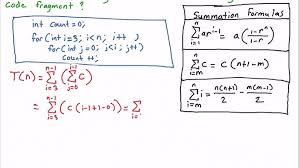 code fragment?
int count=0;
for(int i=3; i<n; i++)
for(int j=0; j<i; j++)
Count++;
T(n) = \sum_{i=3}^{n-1} (\sum_{j=0}^{i-1} C)
= \sum_{i=3}^{n-1} (C(i-1+1-0)) = \sum_{i=
Summation Formulas
\sum_{i=1}^{n} ar^{i-1} = a(\frac{1-r^n}{1-r})
\sum_{i=m}^{n} C = C(n+1-m)
\sum_{i=m}^{n} i = \frac{n(n+1)}{2} - \frac{m(m-1)}{2}